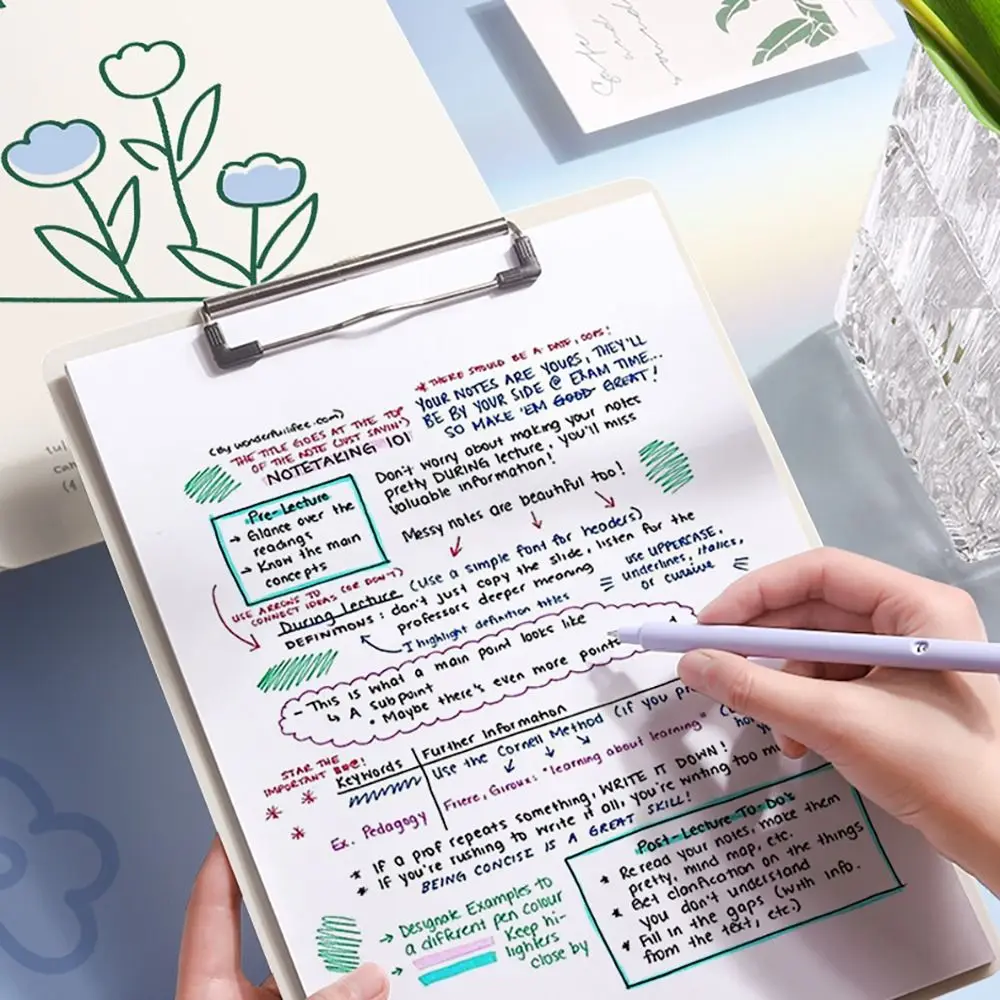 Safe
and
sound
* THERE SHOULD BE A DATE, OOPS!
YOUR NOTES ARE YOURS, THEY'LL
BE BY YOUR SIDE @ EXAM TIME...
SO MAKE 'EM GOOD GREAT!
(By wonderfullifee.com)
THE TITLE GOES AT THE TOP
OF THE NOTE (JUST SAYIN')
NOTETAKING 101
Don't worry about making your notes
pretty DURING lecture, you'll miss
valuable information!
Messy notes are beautiful too!
Pre-Lecture
→ Glance over the
readings
→ Know the main
concepts
USE ARROWS TO
CONNECT IDEAS (OR DON'T)
During Lecture (Use a simple font for headers)
DEFINITIONS: don't just copy the slide, listen for the
professors deeper meaning
I highlight definition titles
USE UPPERCASE,
underlines, italics,
or cursive
- This is what a main point looks like
↳ A subpoint
• Maybe there's even more points
STAR THE
IMPORTANT
Keywords
Further Information
Use the Cornell Method (if you
Ex. Pedagogy
Friere, Giroux: "learning about learning"
* If a prof repeats something, WRITE IT DOWN!
* If you're rushing to write it all, you're writing too
BEING CONCISE IS A GREAT SKILL!
→ Designate Examples to
a different pen colour
→ Keep hi-
lighters
close by
Post-Lecture To-Do's
* Reread your notes, make them
pretty, mind map, etc.
* Get clarification on the things
you don't understand
* Fill in the gaps (with info.
from the text, etc.)